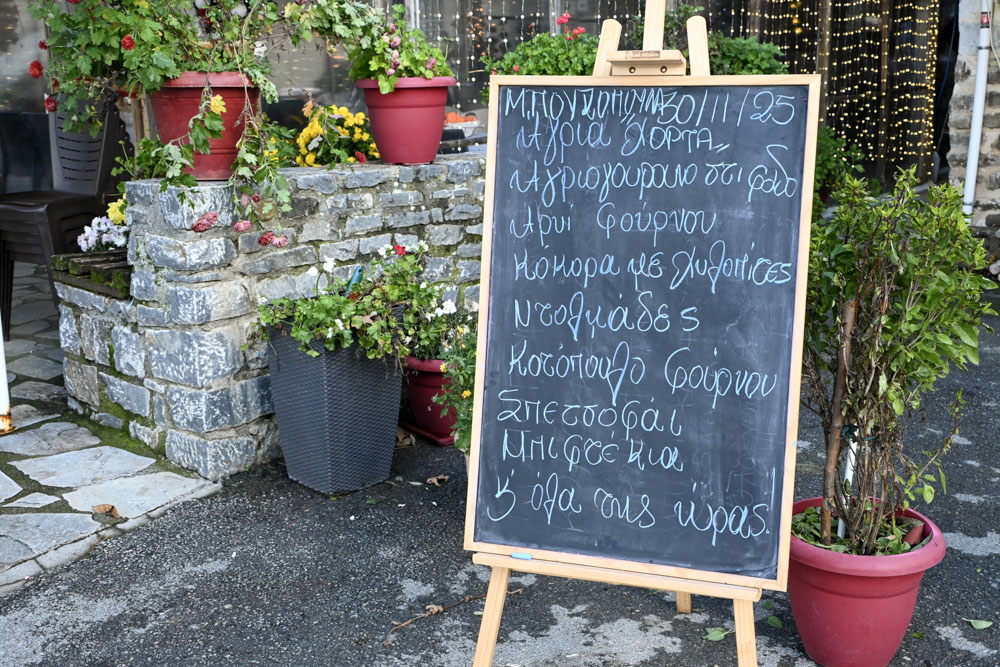 30/11/25
Άγρια χόρτα
Αγριογουρουνο στιφαδο
Αρνί φούρνου
Κόκορα με χυλοπίτες
Ντολμάδες
Κοτόπουλο φούρνου
Σπετσοφάι
Μπιφτέκια
όλα της ώρας!